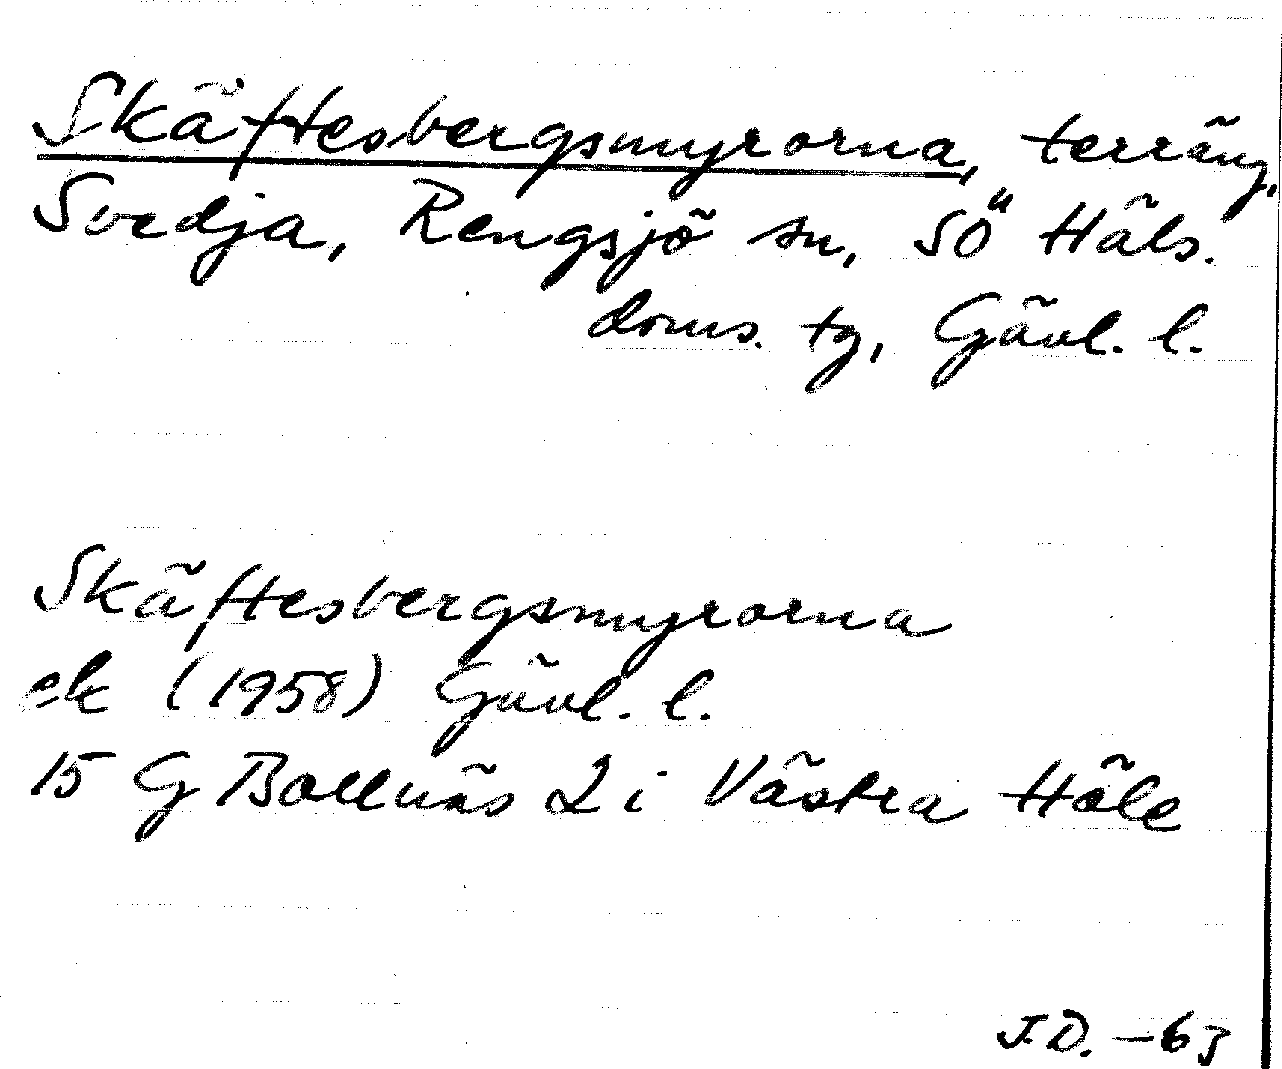 Skäftesbergsmyrorna, terräng,
Svedja, Rengsjö sn, SÖ Häls.
doms. tg, Gävl. l.
Skäftesbergsmyrorna
ek (1958) Gävl. l.
15 G Bollnäs 2 i Västra Höle
J.D. -63